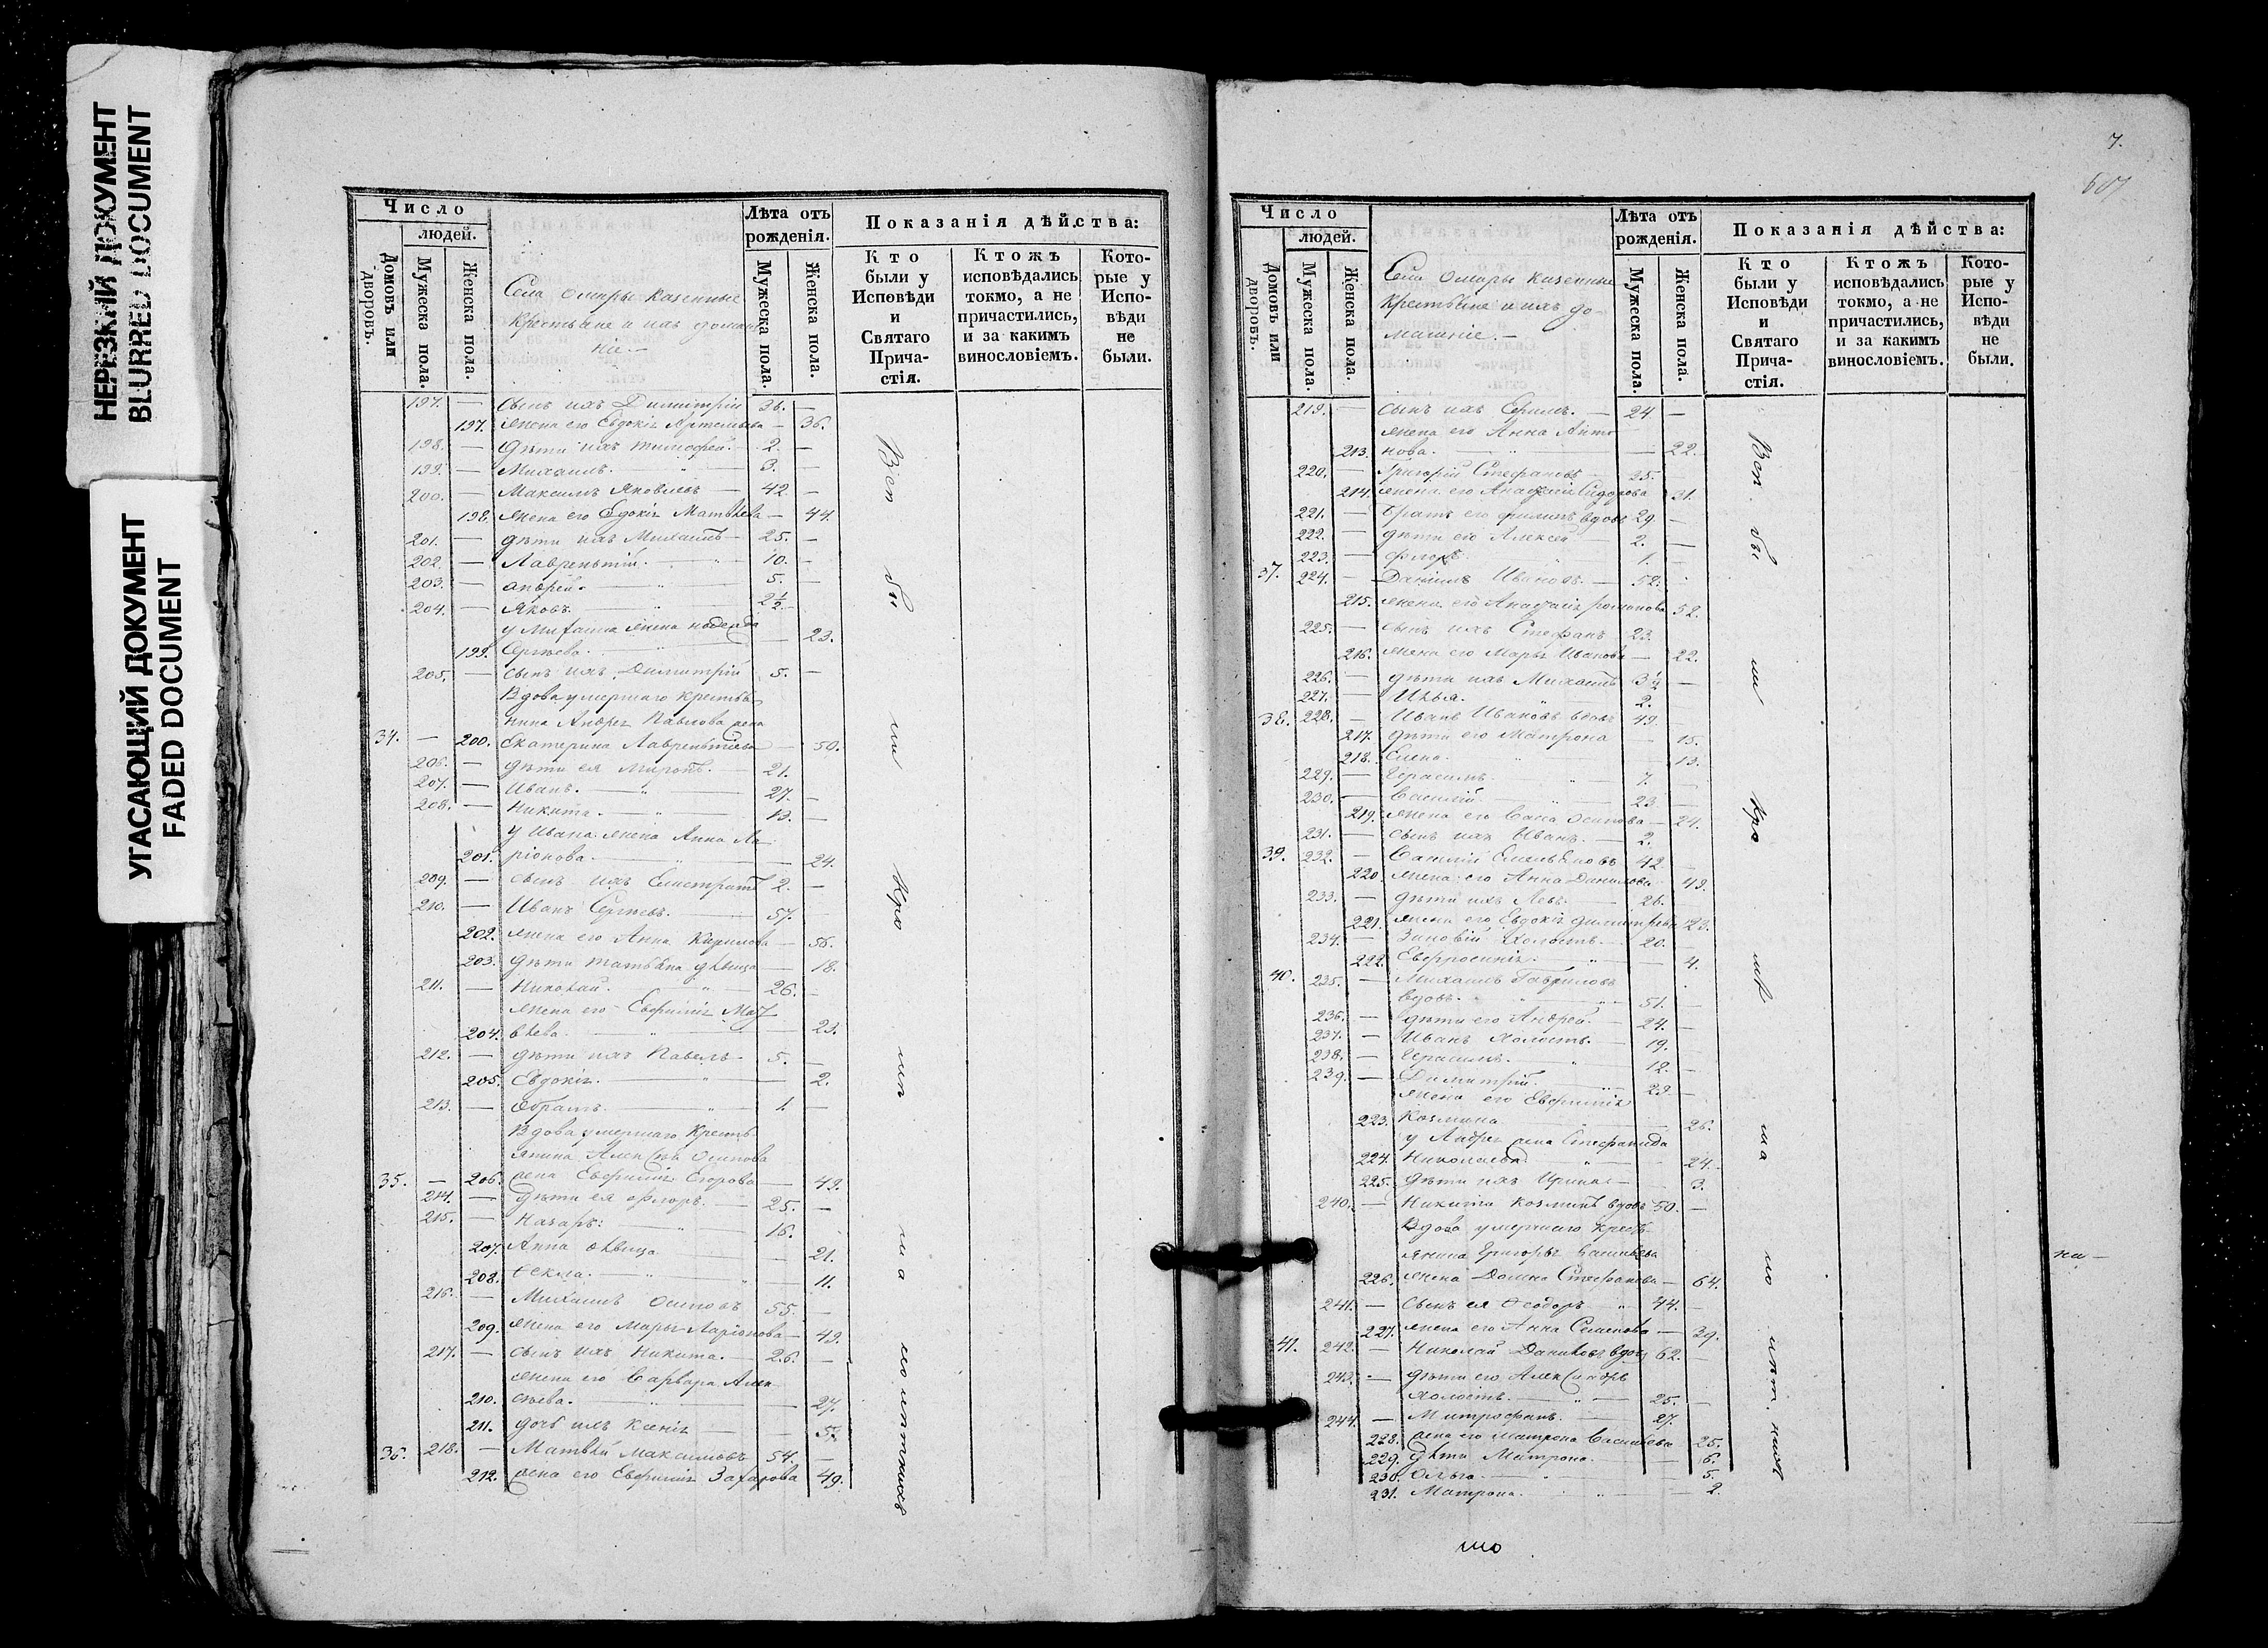 НЕРЕЗКИЙ ДОКУМЕНТ
BLURRED DOCUMENT
УГАСАЮЩИЙ ДОКУМЕНТ
FADED DOCUMENT
Число
людей.
Домовъ или дворовъ.
Мужеска пола.
Женска пола.
Села Омары казенные
крестьяне и ихъ домаш
ніе.—
Лѣта отъ
рожденія.
Мужеска пола.
Женска пола.
Показанія дѣйства:
Кто
были у
Исповѣди
и
Святаго
Прича-
стія.
Ктожъ
исповѣдались
токмо, а не
причастились,
и за какимъ
винословіемъ.
Кото-
рые у
Испо-
вѣди
не
были.
197. — сынъ ихъ Димитрій 36. —
197. жена его Евдокія Артемьева — 36.
198. — дѣти ихъ Тимофей. 2. —
199. — Михаилъ. 3. —
200. — Максимъ Яковлевъ 42. —
198. жена его Евдокія Матвѣева — 44.
201. — дѣти ихъ Михаилъ 25. —
202. — Лаврентій. 10. —
203. — Андрей. 5. —
204. — Яковъ 2½. —
у Михаила жена Надежда
199. Сергѣева. — 23.
205. — сынъ ихъ Димитрій 5. —
Вдова умершаго крестья
нина Андрея Павлова жена
34. — 200. Екатерина Лаврентіева — 50.
206. — дѣти ея Миронъ. 21.
207. — Иванъ. 27. —
208. — Никита. 13. —
у Ивана жена Анна Ла
201. ріонова. — 24.
209. — сынъ ихъ Елистратъ 2. —
210. — Иванъ Сергѣевъ. 57.
202. жена его Анна Кирилова — 56.
203. дѣти Татьяна дѣвица — 18.
211. — Николай. 26. —
жена его Евфимія Мат
204. вѣева. — 23.
212. — дѣти ихъ Павелъ 5. —
205. Евдокія. — 2.
213. — 1. —
Вдова умершаго кресть
янина Алексѣя Осипова
35. — 206. жена Евфимія Егорова — 49.
214. — дѣти ея Флоръ. 25. —
215. — Назаръ. 16.
207. Анна дѣвица — 21.
208. Ѳекла. — 11.
216. — Михаилъ Осиповъ 55. —
209. жена его Марья Ларіонова — 49.
217. — сынъ ихъ Никита. 26. —
жена его Варвара Алек
210. сѣева. — 27.
211. дочь ихъ Ксенія
36. 218. — Матвѣй Максимовъ 54. —
212. жена его Евфимія Захарова 49.
7.
607
Число
людей.
Домовъ или дворовъ.
Мужеска пола.
Женска пола.
Села Омары казенные
крестьяне и ихъ до-
машніе.—
Лѣта отъ
рожденія.
Мужеска пола.
Женска пола.
Показанія дѣйства:
Кто
были у
Исповѣди
и
Святаго
Прича-
стія.
Ктожъ
исповѣдались
токмо, а не
причастились,
и за какимъ
винословіемъ.
Кото-
рые у
Испо-
вѣди
не
были.
219. — сынъ ихъ Ефимъ. 24 —
жена его Анна Анто
213. нова. — 22.
220. — Григорій Стефановъ 35.
214. жена его Анастасія Сидорова 31.
221. — братъ его Филипъ вдовъ 29. —
222. — дѣти его Алексей 2. —
223. — Флоръ. 1. —
37. 224. — Даніилъ Ивановъ. 52.
215. жена его Анастасія Романова 52.
225. — сынъ ихъ Стефанъ 23.
216. жена его Марья Иванова — 22.
226. — дѣти ихъ Михаилъ 3½ —
227. — Илья. 2.
38. 228. — Иванъ Ивановъ вдовъ 49.
217. дѣти его Матрона 15.
218. Елена.
229. — Герасимъ. 7.
230. — Василій 23.
219. жена его Васса Осипова — 24.
231. — сынъ ихъ Иванъ. 2.
39. 232. — Василій Емельяновъ 42.
220. жена его Анна Данилова 43.
233. — дѣти ихъ Левъ. 26.
221. жена его Евдокія Димитріева 23.
234. — Зиновій холостъ. 20. —
222. Евфросинія. — 4.
40. 235. — Михаилъ Гавриловъ
вдовъ. 51. —
236. — дѣти его Андрей. 24. —
237. — Иванъ холостъ. 19.
238. — Герасимъ. 12.
239. — Димитрій. 29. —
жена его Евфимія
223. Козмина — 26.
у Андрея жена Стефанида
224. Николаева — 24.
225. дѣти ихъ Ирина — 3.
240. — Никита Козминъ вдовъ 50. —
Вдова умершаго кресть
янина Григорья Васильева
226. жена Домна Стефанова — 64.
241. — сынъ ея Ѳеодоръ 44. —
227. жена его Анна Семенова — 39.
41. 242. — Николай Даниловъ вдовъ 62. —
243. — дѣти его Александръ
холостъ. 25. —
244. — Митрофанъ. 27.
228. жена его Матрона Васильева 25.
229. дѣти Матрона. 6.
230. Ольга. 5.
231. Матрона. 2.